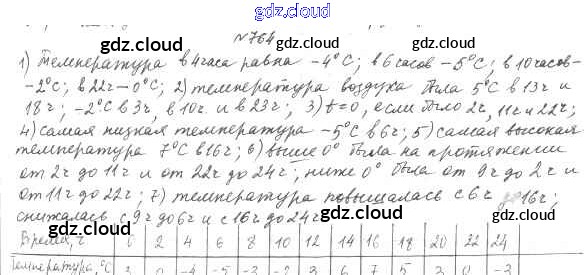 gdz.ozdz.com
gdz.ozdz.com
№764
gdz.ozdz.com
1) Температура в 4 часа равна -4°C; в 6 часов -5°C; в 10 часов -
-2°C; в 22ч - 0°C; 2) температура воздуха была 5°C в 13ч и
18ч; -2°C в 3ч, в 10ч. и в 23ч; 3) t=0, если было 2ч, 11ч и 22ч;
4) самая низкая температура -5°C в 6ч; 5) самая высокая
температура 7°C в 16ч; 6) выше 0° была на протяжении
от 2ч до 11ч и от 22ч до 24ч; ниже 0° была от 9ч до 2ч и
от 11ч до 22ч; 7) температура повышалась с 6ч до 16ч;
снижалась с 9ч до 6ч и с 16ч до 24ч
gdz.ozdz.com
gdz.ozdz.com
Время, ч 0 2 4 6 8 10 12 14 16 18 20 22 24
Температура, °C 3 0 -4 -5 -3 -2 3 6 7 5 3 0 -3